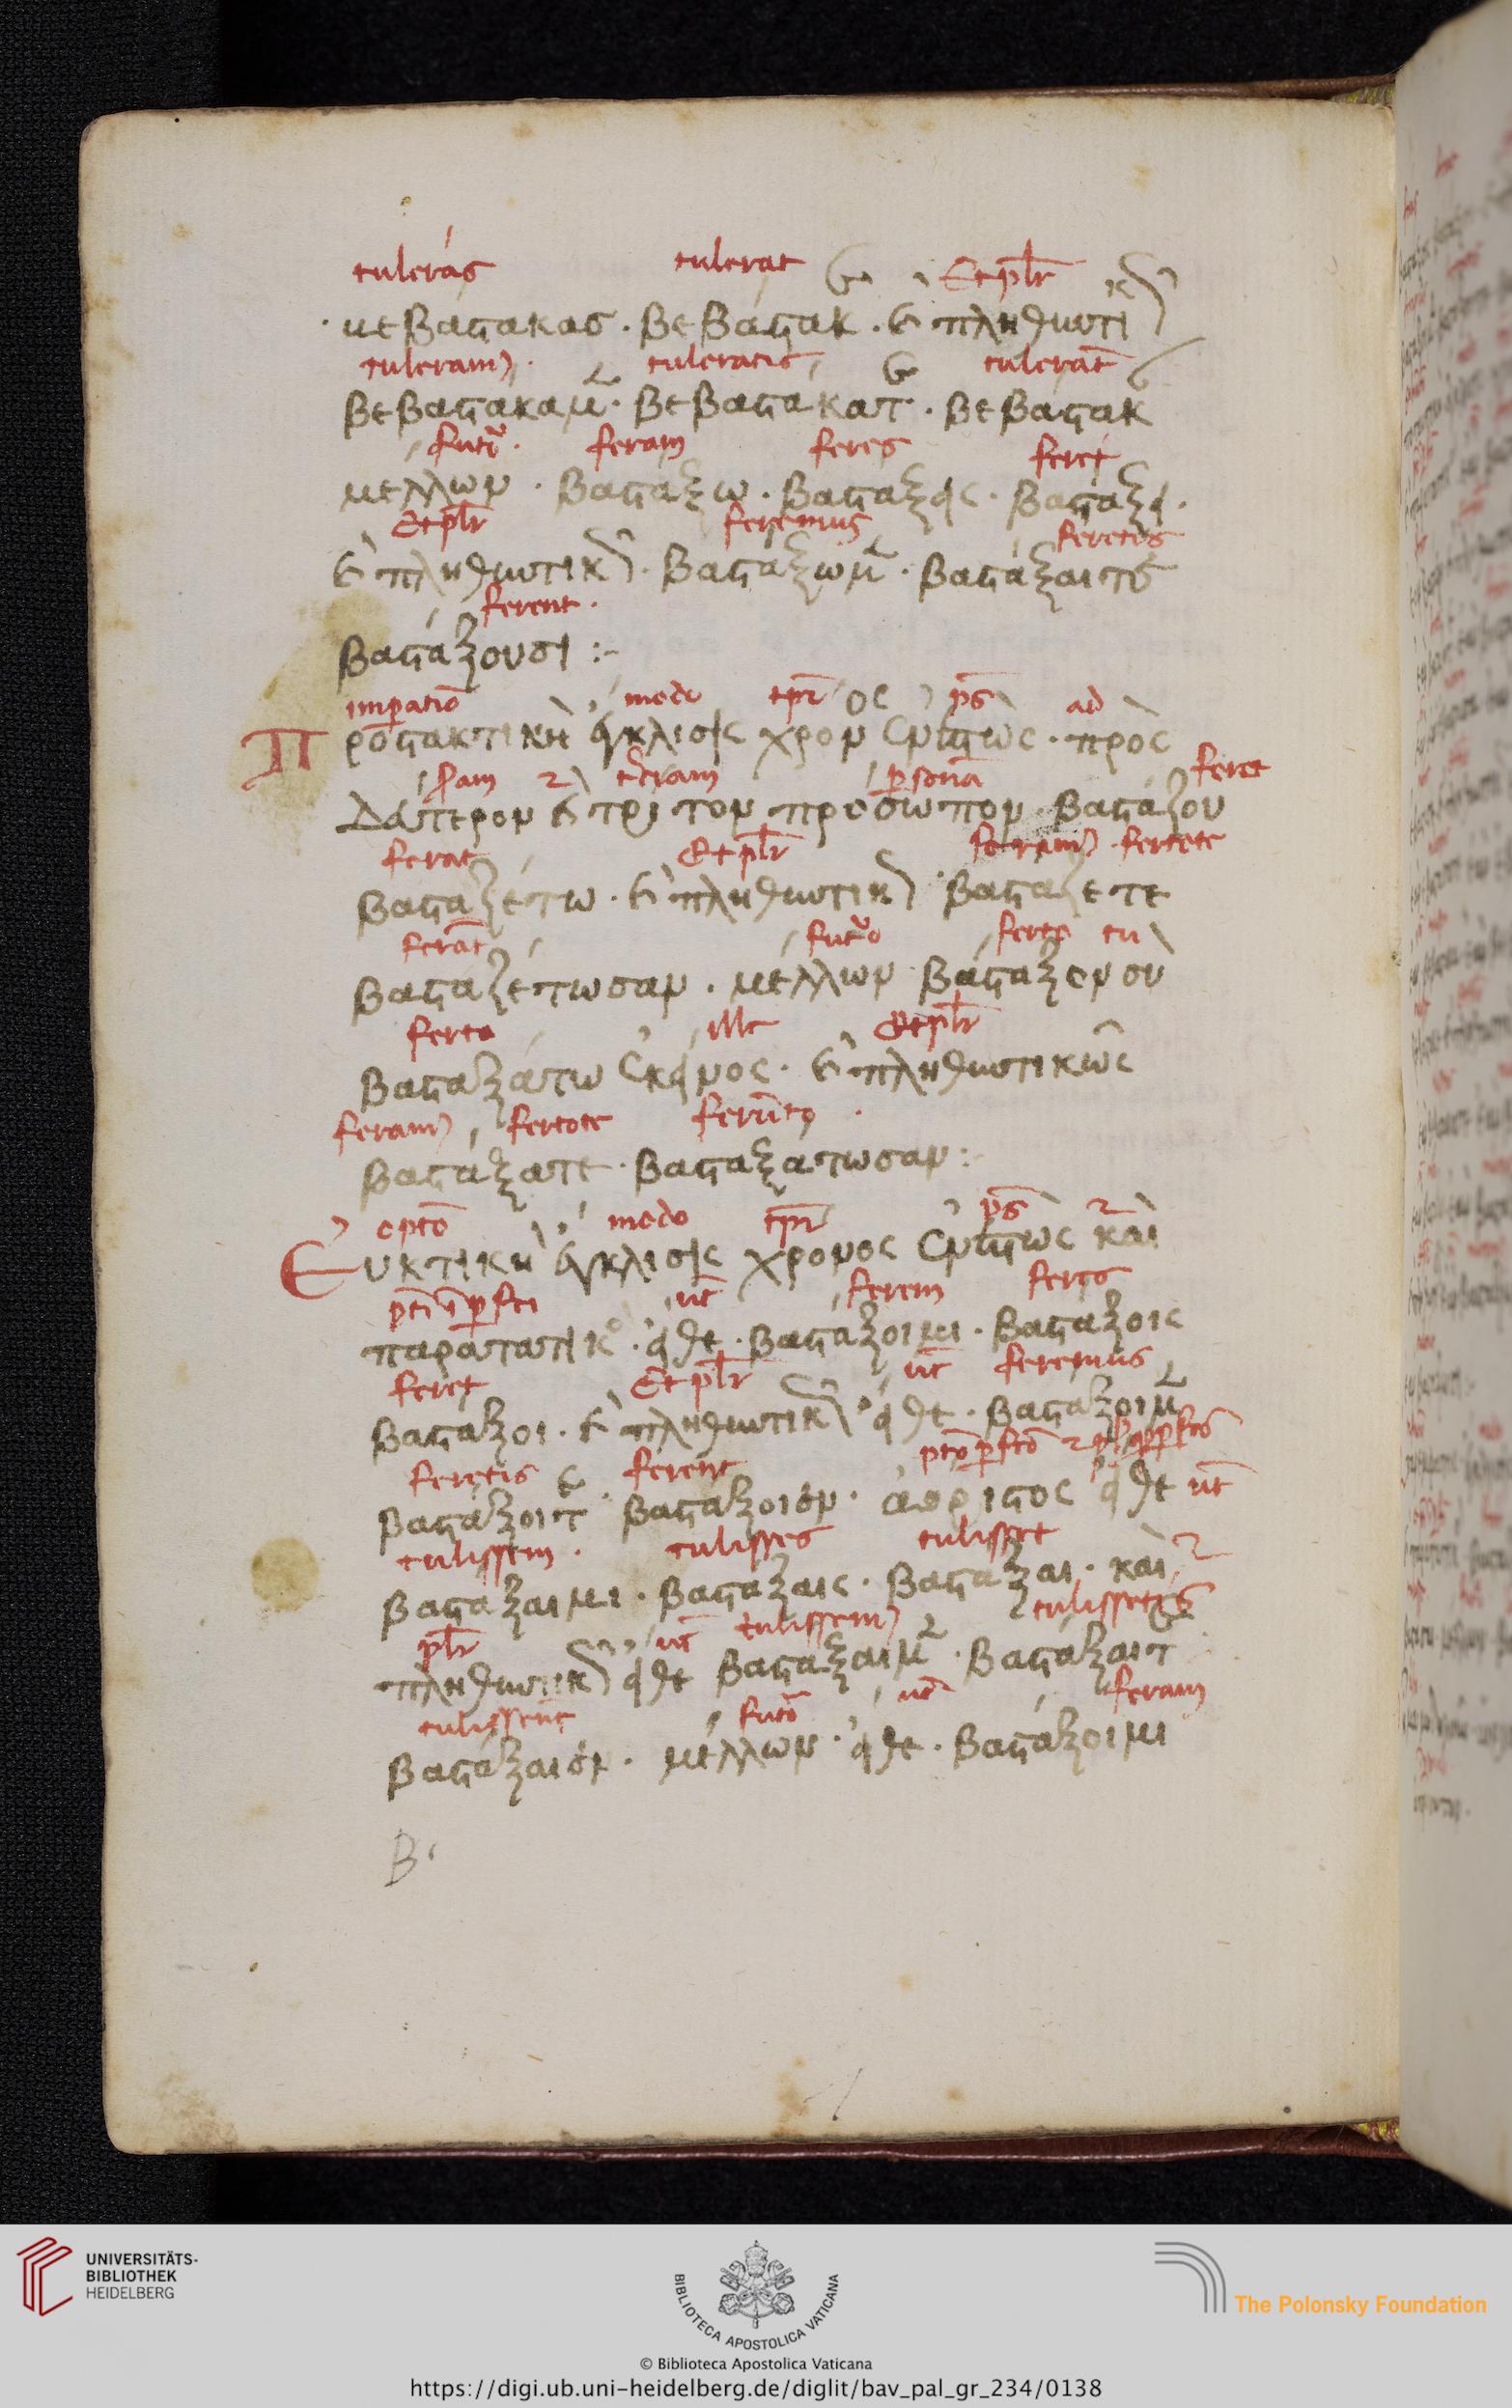 tuleras tulerat Et plr̄
βεβαστακας · βεβάστακε · καὶ πληθυντικῶς
tuleram) · tuleratis tulerāt
βεβαστακαμεν · βεβαστάκατε · βεβαστακ
futū · feram feres feret
μέλλων · βαστάξω · βαστάξεις · βαστάξει ·
Et plr̄ feremus feretis
καὶ πληθυντικῶς · βαστάξωμεν · βαστάξαιτε
ferent ·
βαστάξουσι :-
imperatiō modo tpr̄ ps̄ ad
Προστακτικὴ ἔγκλισις χρόνος ἐνεστὼς · πρὸς
2 tertiam psonā feret
δεύτερον καὶ τρίτον πρόσωπον βαστάζου
ferat Et plr̄ feram) · fertete
βασταζέτω · καὶ πληθυντικῶς βασταζετε
ferāt futūo ferto tu
βασταζέτωσαν · μέλλων βάσταξον σὺ
ferto ille Et plr̄
βασταξάτω ἐκεῖνος · καὶ πληθυντικῶς
feram) fertote ferūto ·
βαστάξατε · βασταξάτωσαν :-
optō modo tpr̄ ps̄ 2
Εὐκτικὴ ἔγκλισις χρόνος ἐνεστὼς καὶ
ut̄ ferem feres
παρατατικός · εἴθε · βαστάζοιμι · βασταζοις
feret Et plr̄ ut̄ feremus
βασταζοι · καὶ πληθυντικῶς εἴθε · βασταζοιμεν
feretis ferent
βαστάζοιτε · βασταζοιεν · ἀόριστος εἴθε ut̄
tulissem · tulisses tulisset
βασταξαιμι · βασταξαις · βασταξαι · καὶ 2
plr̄ ut̄ tulissem) tulissetis
πληθυντικῶς εἴθε βασταξαιμεν · βαστάξαιτε
tulissēt futō ut̄ feram
βαστάξαιεν · μέλλων · εἴθε · βαστάξοιμι
β·
UNIVERSITÄTS-
BIBLIOTHEK
HEIDELBERG
BIBLIOTECA APOSTOLICA VATICANA
The Polonsky Foundation
© Biblioteca Apostolica Vaticana
https://digi.ub.uni-heidelberg.de/diglit/bav_pal_gr_234/0138